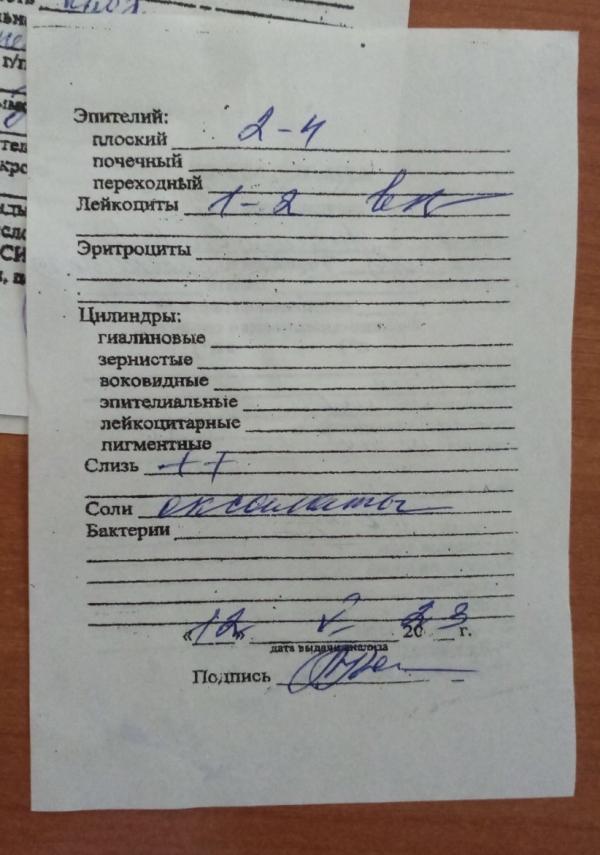 Эпителий:
плоский 2-4
почечный
переходный
Лейкоциты 1-2 в п
Эритроциты
Цилиндры:
гиалиновые
зернистые
восковидные
эпителиальные
лейкоцитарные
пигментные
Слизь ++
Соли оксалаты
Бактерии
«12» V 20 23 г.
дата выдачи анализа
Подпись